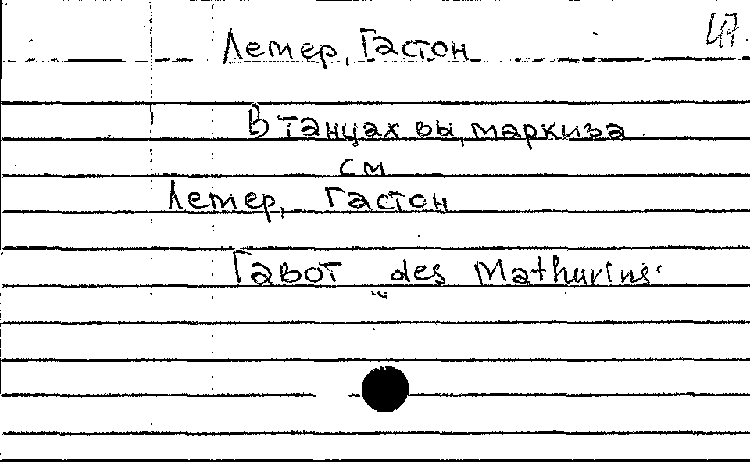 Лемер, Гастон
В танцах вы, маркиза
см
Лемер, Гастон
Гавот „des Mathurins"